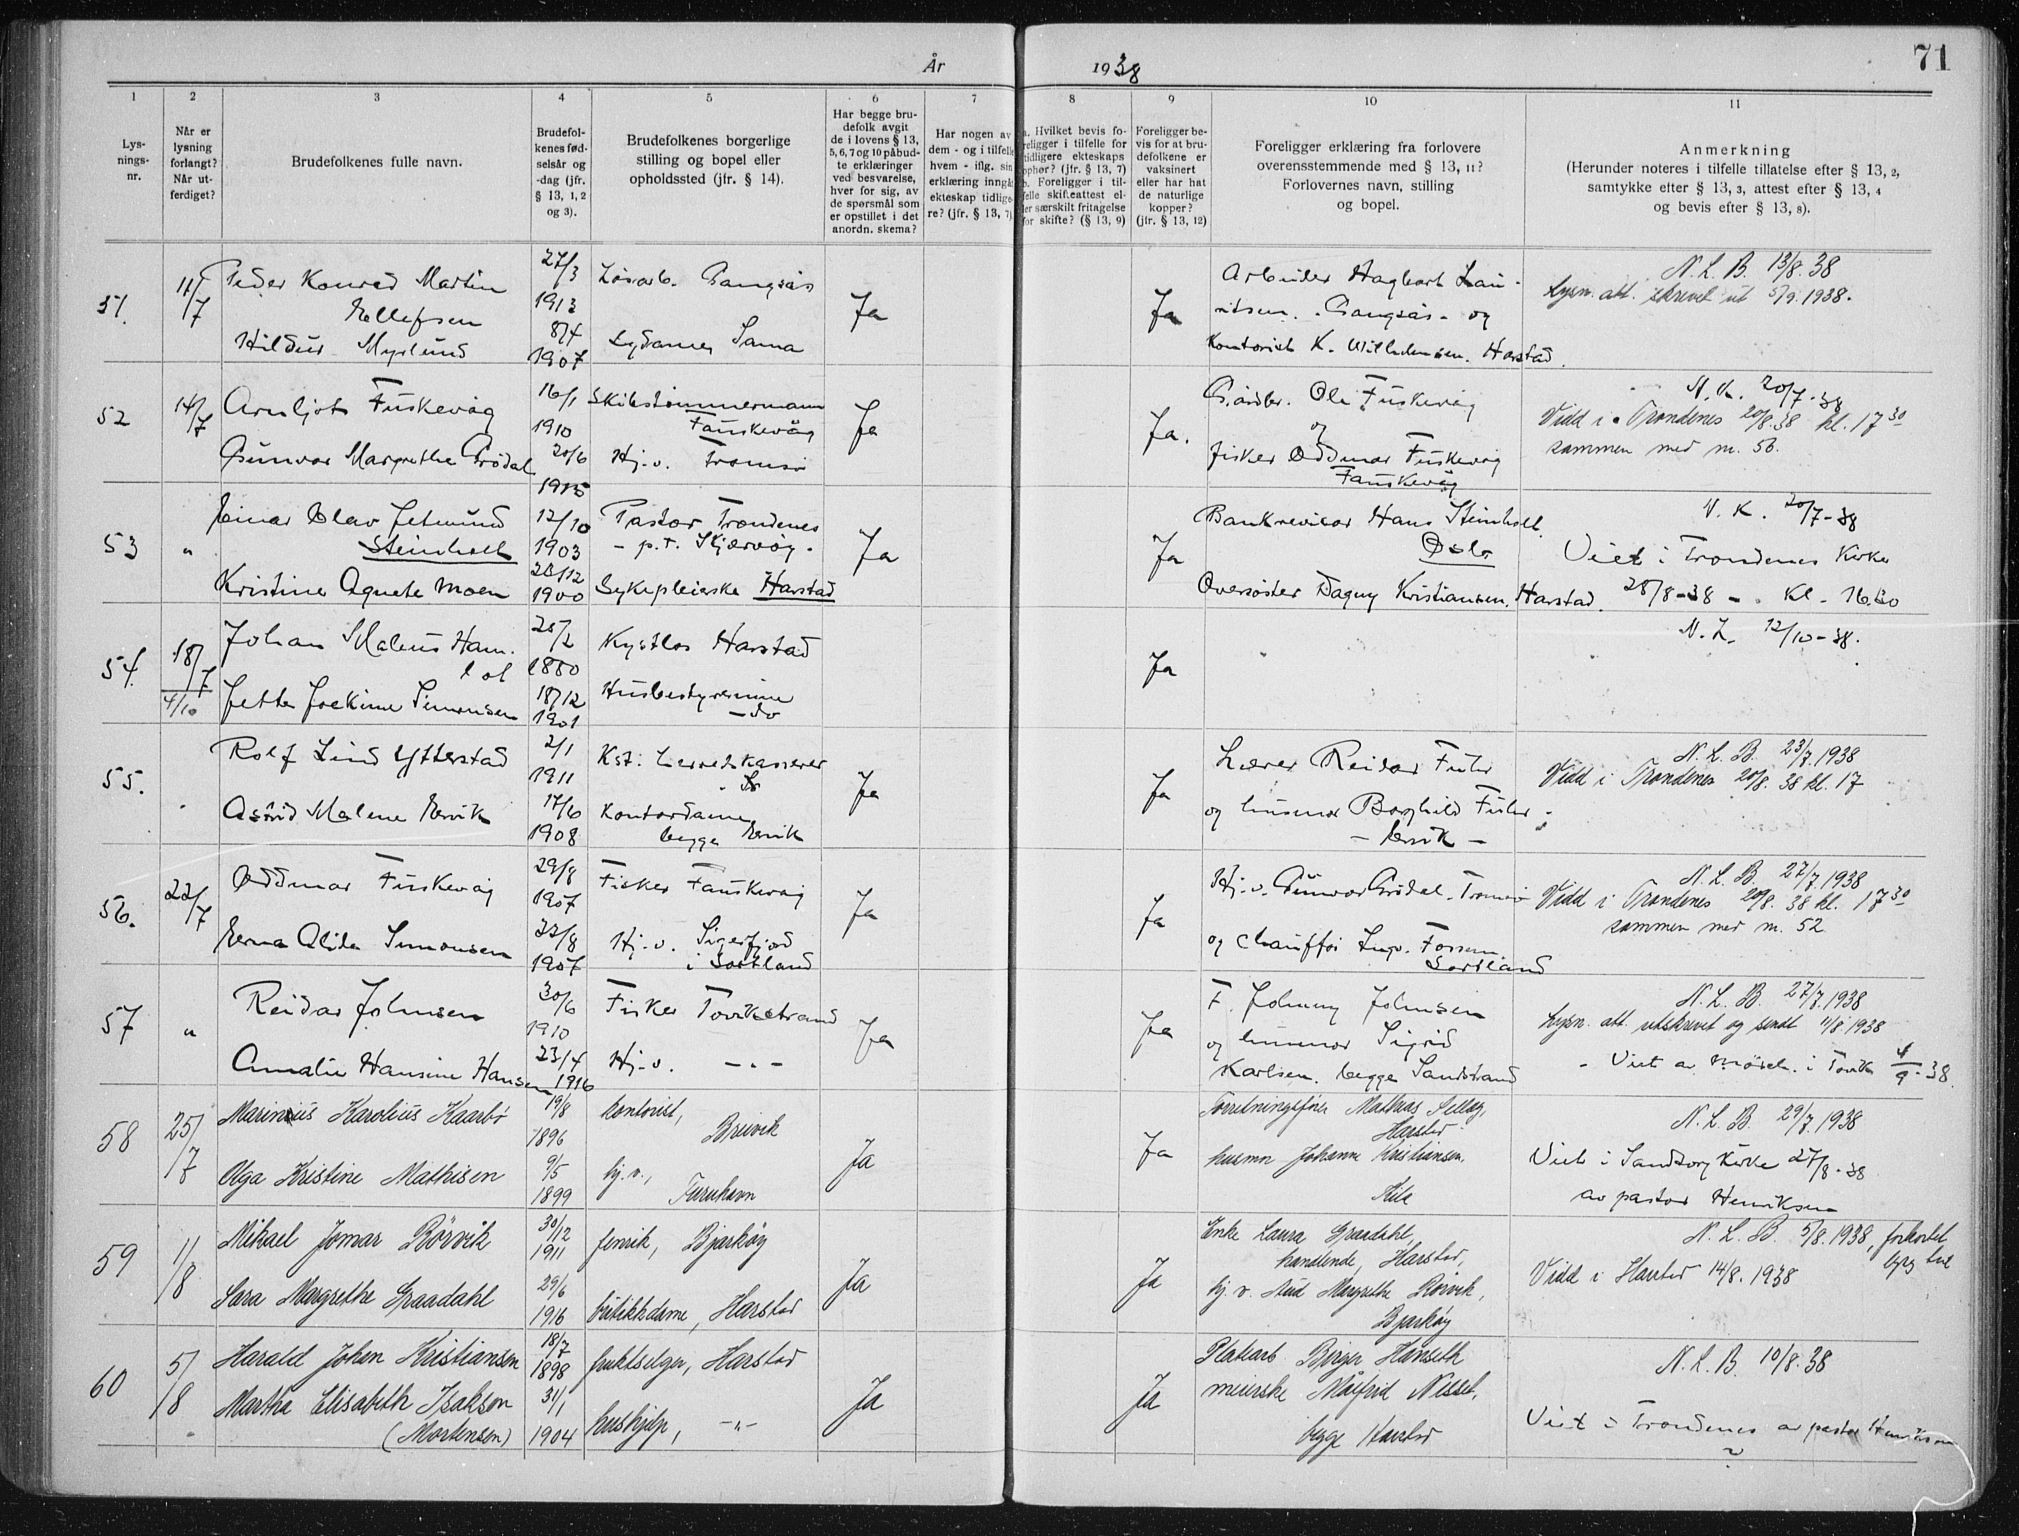 År 1938
71
1
2
3
4
5
6
7
8
9
10
11
Lys-
nings-
nr.
Når er
lysning
forlangt?
Når ut-
ferdiget?
Brudefolkenes fulle navn.
Brudefol-
kenes fød-
selsår og
-dag (jfr.
§ 13, 1, 2
og 3).
Brudefolkenes borgerlige
stilling og bopel eller
opholdssted (jfr. § 14).
Har begge bru-
defolk avgit
de i lovens § 13,
5, 6, 7 og 10 påbud-
te erklæringer
ved besvarelse,
hver for sig, av
de spørsmål som
er opstillet i det
anordn. skema?
Har nogen av
dem - og i tilfelle
hvem - iflg. sin
erklæring inngåt
ekteskap tidlige-
re? (jfr. § 13, 7)
a. Hvilket bevis fo-
religger i tilfelle for
tidligere ekteskaps
ophør? (jfr. § 13, 7)
b. Foreligger i til-
felle skifteattest el-
ler særskilt fritagelse
for skifte? (§ 13, 9)
Foreligger be-
vis for at bru-
defolkene er
vaksinert
eller har hat
de naturlige
kopper?
(jfr. § 13, 12)
Foreligger erklæring fra forlovere
overensstemmende med § 13, 11?
Forlovernes navn, stilling
og bopel.
Anmerkning
(Herunder noteres i tilfelle tillatelse efter § 13, 2,
samtykke efter § 13, 3, attest efter § 13, 4
og bevis efter § 13, 8).
51.
11/7
Peder Konrad Martin
Ellefsen
Hildur Myrlund
27/3
1913
8/4
1907
Løsarb. Gangsås
Sydame, Sama
Ja
Ja
Arbeider Hagbart Lau-
ritsen. Gangsås. og
Kontorist K. Wilhelmsen. Harstad.
N. L. B. 13/8. 38
Lysn. att. skrevet ut 5/9. 1938.
52
14/7
Arnljot Fuskevåg
Gunvor Margrethe Grödal
16/1
1910
20/6
1915
Skibstømmermann
Fauskevåg
Hj. v. Tromsø
Ja
Ja.
Gårdbr. Ole Fuskevåg
og
fisker Oddmar Fuskevåg
Fauskevåg
N. K. 20/7-38
Vidd i Trondenes 20/8.38 kl. 17 30
sammen med nr. 56.
53
"
Einar Olav Jetmund
Steinholt
Kristine Agnete Moen
12/10
1903
28/12
1900
Pastor Trondenes
- p.t. Skjærvøy.
Sykepleierske Harstad
Ja
Ja
Bankrevisor Hans Steinholt.
Oslo
Oversøster Dagny Kristiansen, Harstad.
N. K. 20/7-38
Viet i Trondenes Kirke
28/8-38 - kl. 16.30
54.
18/7
4/10
Johan Maleus Ham.
Jette Joakime Simonsen
1880
18/12
1901
Kystlos Harstad
Husbestyrerinne
- do
Ja
N. L. 12/10-38.
55.
Rolf Lind Ytterstad
Astrid Malene Ervik
2/1
1911
17/6
1908
Kst. herredskasserer
Kontordame
begge Ervik
Ja
Ja
Lærer Reidar
og husmor Borghild
- Ervik -
N. L. B. 23/7. 1938
Vidd i Trondenes 20/8. 38 kl. 17
56.
22/7
Oddmar Fuskevåg
Erna Alida Simonsen
29/8
1907
22/8
1907
Fisker Fauskevåg
Hj. v. Sigerfjord
i Sortland
Ja
Ja
Hj. v. Gunvor Grödal. Tromsø
og chauffør Ingv. Fossum
Sortland
N. L. B. 27/7. 1938
Vidd i Trondenes 20/8. 38 kl. 17 30
sammen med nr. 52
57
"
Reidar Johnsen
Amalie Hansine Hansen
30/6
1910
23/4
1916
Fisker Tovikstrand
Hj. v. - " -
Ja
Ja
F. Johnny Johnsen
og husmor Sigrid
Karlsen. begge Sandstrand
N. L. B. 27/7. 1938
Lysn. att. utskrevet og sendt 11/8 1938
- Viet av i Tovik 4/9.38.
58
25/7
Marinius Karolius Kaarbø
Olga Kristine Mathisen
19/8
1896
9/5
1899
kontorist,
Breivik
hj. v.,
Furuhavn
Ja
Ja
Forretningsfører Mathias
Harstad
husmor Johanne Kristiansen,
Kila
N. L. B. 29/7. 1938
Viet i Sandtorg Kirke 27/8-38
av pastor Henriksen
59
11/8
Mikael Jomar Rörvik
Sara Margrethe Graadahl
30/12
1911
29/6
1916
fenrik, Bjarkøy
butikkdame, Harstad
Ja
Ja
Enke Laura Graadahl,
handlende, Harstad,
hj. v. Aud Margrethe Rörvik,
Bjarkøy
N. L. B. 5/8. 1938, forkortet
lysg tid
Vidd i Harstad 14/8. 1938
60
5/8
Harald Johan Kristiansen
Martha Elisabeth Isaksen
(Mortensen)
18/7
1898
31/1
1904
fruktselger, Harstad
hushjelp, - " -
Ja
Ja
Platearb Birger Hanseth
meierske Målfrid Nisset,
begge Harstad
N. L. B. 10/8. 38
Viet i Trondenes av pastor Henriksen